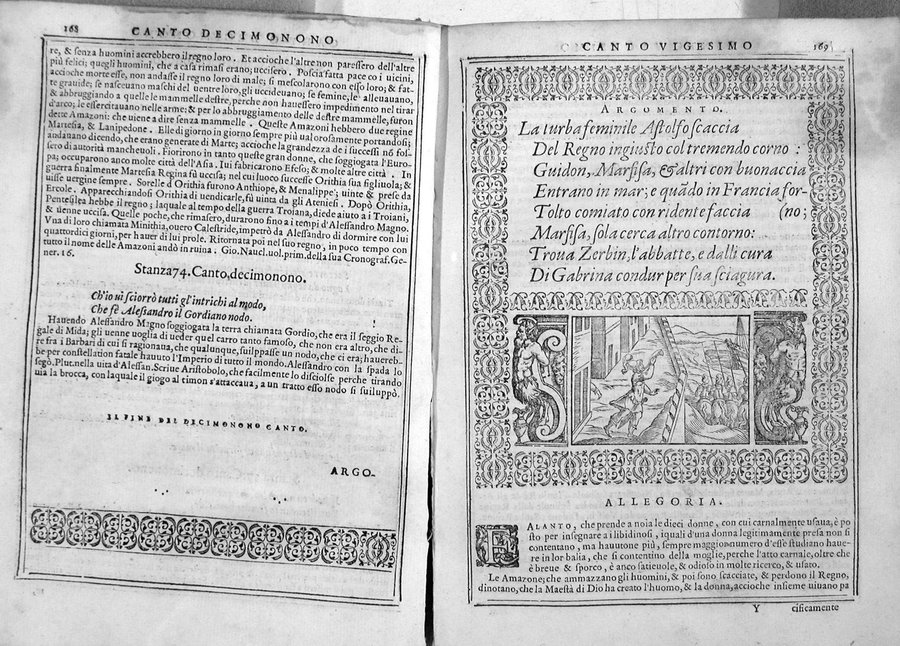 168
CANTO DECIMONONO
re, & senza huomini accrebbero il regno loro. Et accioche l'altre non paressero dell'altre
più felici; quegli huomini, che a casa rimasi erano; uccisero. Poscia fatta pace co i uicini,
accioche morte esse, non andasse il regno loro di male; si mescolarono con esso loro; & fat-
te grauide; se nasceuano maschi del uentre loro, gli uccideuano; se femine, le alleuauano,
& abbruggiando a quelle le mammelle destre, perche non hauessero impedimento nel tirar
d'arco; le essercitauano nelle arme; & per lo abbruggiamento delle destre mammelle, furon
dette Amazoni: che uiene a dire senza mammelle. Queste Amazoni hebbero due regine
Martesia, & Lanipedone. Elle di giorno in giorno sempre più ualorosamente portandosi;
andauano dicendo, che erano generate di Marte; accioche la grandezza de i successi nō fos-
sero di autorità manchetoli. Fiorirono in tanto queste gran donne, che soggiogata l'Euro-
pa; occuparono anco molte città d'Asia. Iui fabricarono Efeso; & molte altre città. In
guerra finalmente Martesia Regina fù uccisa; nel cui luoco successe Orithia sua figliuola; &
uisse uergine sempre. Sorelle d'Orithia furono Anthiope, & Menalippe; uinte & prese da
Ercole. Apparecchiandosi Orithia di uendicarle, fù uinta da gli Ateniesi. Dopò Orithia,
Pentesilea hebbe il regno; laquale al tempo della guerra Troiana, diede aiuto a i Troiani,
& uenne uccisa. Quelle poche, che rimasero, durarono fino a i tempi d'Alessandro Magno.
Vna di loro chiamata Minithia, ouero Calestride, impetrò da Alessandro di dormire con lui
quattordici giorni, per hauer di lui prole. Ritornata poi nel suo regno, in poco tempo con
tutto il nome delle Amazoni andò in ruina. Gio. Naucl. uol. prim. della sua Cronograf. Ge-
ner. 16.
Stanza 74. Canto, decimonono.
Ch'io ui sciorrò tutti gl'intrichi al modo,
Che fè Alessandro il Gordiano nodo.
Hauendo Alessandro Magno soggiogata la terra chiamata Gordio, che era il seggio Re-
gale di Mida; gli uenne uoglia di ueder quel carro tanto famoso, che non era altro, che di-
re fra i Barbari di cui si ragionaua, che qualunque, suilppasse un nodo, che ci era; hauereb-
be per constellation fatale hauuto l'Imperio di tutto il mondo. Alessandro con la spada lo
segò. Plut. nella uita d'Alessan. Scriue Aristobolo, che facilmente lo disciolse perche tirando
uia la brocca, con laquale il giogo al timon s'attaccaua, a un tratto esso nodo si suiluppò.
IL FINE DEL DECIMONONO CANTO.
ARGO-
CANTO VIGESIMO
169
ARGOMENTO.
La turba feminile Astolfo scaccia
Del Regno ingiusto col tremendo corno :
Guidon, Marfisa, & altri con buonaccia
Entrano in mar; e quādo in Francia for-
Tolto comiato con ridente faccia (no;
Marfisa, sola cerca altro contorno:
Troua Zerbin, l'abbatte, e dalli cura
Di Gabrina condur per sua sciagura.
ALLEGORIA.
FALANTO, che prende a noia le dieci donne, con cui carnalmente usaua, è po
sto per insegnare a i libidinosi, iquali d'una donna legitimamente presa non si
contentano, ma hauutone più, sempre maggior numero d'esse studiano haue-
re in lor balia, che si contentino della moglie, perche l'atto carnale, oltre che
è breue & sporco, è anco satieuole, & odioso in molte ricerco, & usato.
Le Amazone; che ammazzano gli huomini, & poi sono scacciate, & perdono il Regno,
dinotano, che la Maestà di Dio ha creato l'huomo, & la donna, accioche insieme uiuano pa
Y cificamente